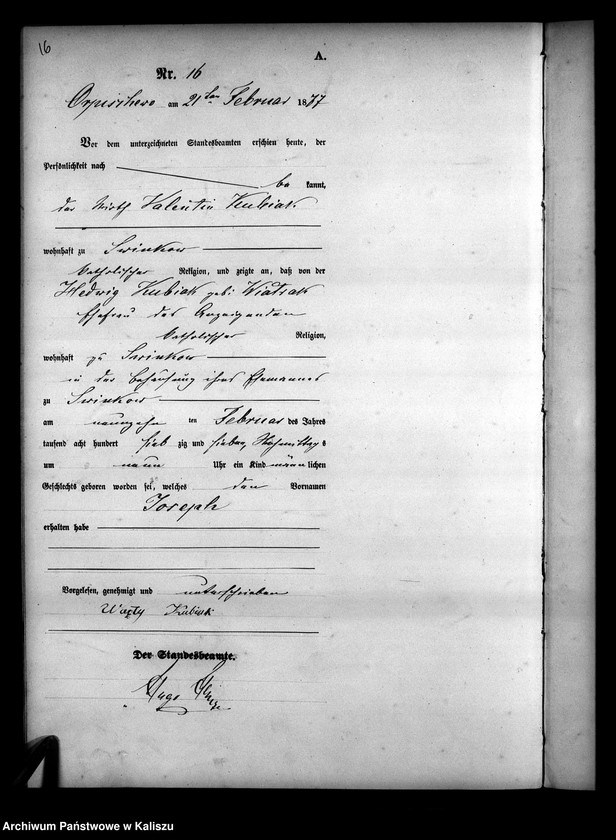 16
A.
Nr. 16
am 21ten Februar 1877
Vor dem unterzeichneten Standesbeamten erschien heute, der
Persönlichkeit nach
be kannt,
der Wirth Valentin Kubiak
wohnhaft zu Swinkow
katholischer Religion, und zeigte an, daß von der
Hedwig Kubiak geb: Wiatrak
Ehefrau des Anzeigenden
katholischer Religion,
wohnhaft zu Swinkow
in der Behausung ihres Ehemannes
zu Swinkow
am neunzehn ten Februar des Jahres
tausend acht hundert sieb zig und sieben, Nachmittags
um neun Uhr ein Kind männlichen
Geschlechts geboren worden sei, welches den Vornamen
Joseph
erhalten habe
Vorgelesen, genehmigt und unterschrieben
Kubiak
Der Standesbeamte.
Hugo
Archiwum Państwowe w Kaliszu